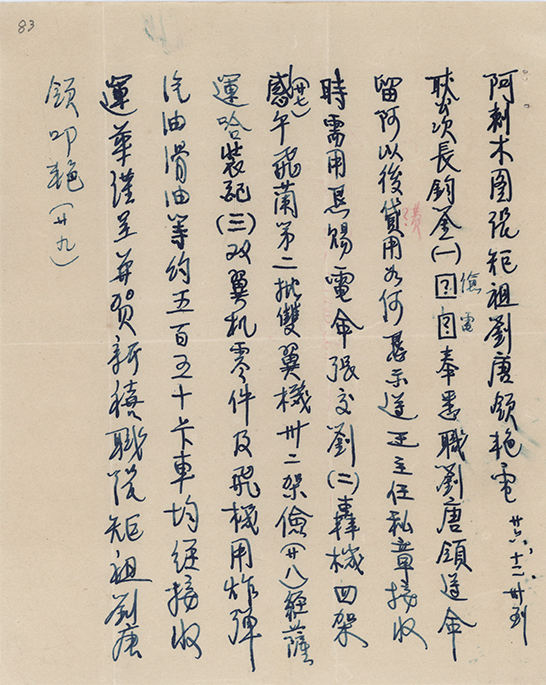 83
阿剌木圖張鉅祖劉唐領艷電 廿六、十二、卅到
耿公次長鈞鑒(一)儉電奉悉職劉唐領遵命
留阿以後費用如何懇示遵王主任私章接收
時需用懇賜電命張交劉(二)轟機四架
感(廿七)午飛蘭第二批雙翼機卅二架儉(廿八)經薩
運哈裝配(三)双翼机零件及飛機用炸彈
汽油滑油等約五百五十卡車均經接收
運華謹呈并賀新禧職張鉅祖劉唐
領叩艷(廿九)